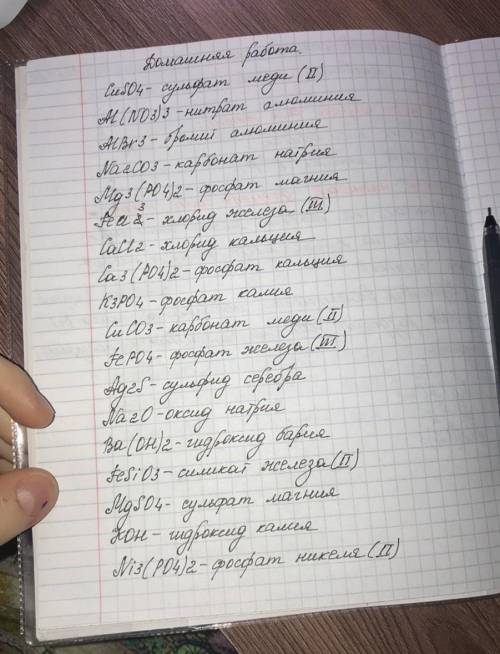 Домашняя работа.
CuSO4-сульфат меди (II)
Al(NO3)3-нитрат алюминия
AlBr3-бромит алюминия
Na2CO3-карбонат натрия
Mg3(PO4)2-фосфат магния
FeCl3-хлорид железа (III)
CaCl2-хлорид кальция
Ca3(PO4)2-фосфат кальция
K3PO4-фосфат калия
CuCO3-карбонат меди (II)
FePO4-фосфат железа (III)
Ag2S-сульфид серебра
Na2O-оксид натрия
Ba(OH)2-гидроксид бария
FeSiO3-силикат железа (II)
MgSO4-сульфат магния
KOH-гидроксид калия
Ni3(PO4)2-фосфат никеля (II)